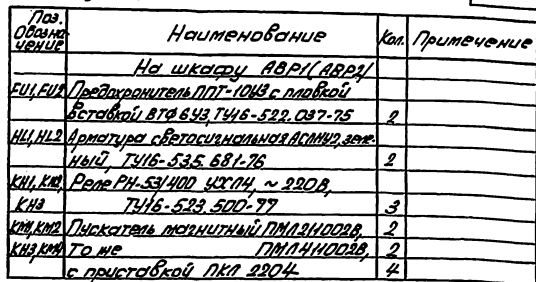 Поз. Обозна- чение Наименование Кол. Примечение
На шкафу АВР1(АВР2)
FU1,FU2 Предохранитель ППТ-10У3 с плавкой
вставкой ВТФ 6У3, ТУ16-522.037-75 2
HL1,HL2 Арматура светосигнальная АСЛНУ2, зеле-
ный, ТУ16-535.681-76 2
КН1,КН2 Реле РН-53/400 УХЛ4, ~220В,
КН3 ТУ16-523.500-77 3
КМ1,КМ2 Пускатель магнитный ПМЛ211002В, 2
КМ3,КМ4 То же ПМЛ411002В, 2
с приставкой ПКЛ 2204 4